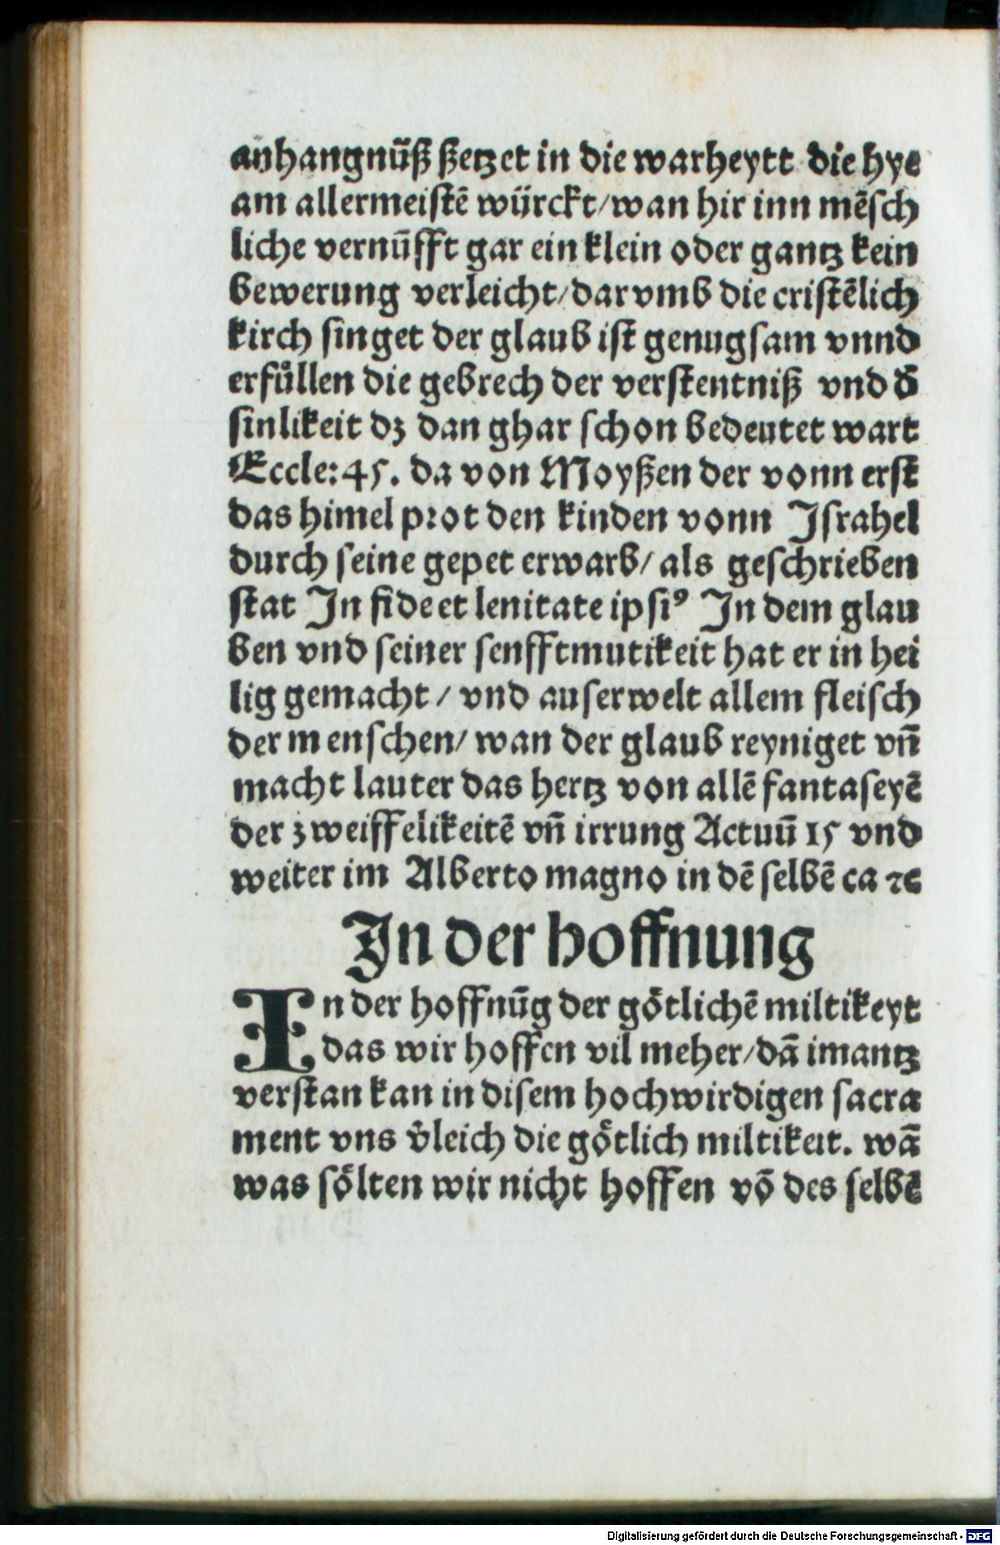 anhangnūß ßetzet in die warheytt die hye
am allermeistē würckt/wan hir inn mēsch
liche vernūfft gar ein klein oder gantz kein
bewerung verleicht/darvmb die cristēlich
kirch singet der glaub ist genugsam vnnd
erfüllen die gebrech der verstentniß vnd d̄
sinlikeit dz dan ghar schon bedeutet wart
Eccle:45. da von Moyßen der vonn erst
das himel prot den kinden vonn Israhel
durch seine gepet erwarb/ als geschrieben
stat In fide et lenitate ipsiꝰ In dem glau
ben vnd seiner senfftmutikeit hat er in hei
lig gemacht/ vnd auserwelt allem fleisch
der menschen/ wan der glaub reyniget vn̄
macht lauter das hertz von allē fantaseyē
der zweiffelikeitē vn̄ irrung Actuū 15 vnd
weiter im Alberto magno in dē selbē ca ⁊c
In der hoffnung
In der hoffnūg der götlichē miltikeyt
das wir hoffen vil meher/dā imantz
verstan kan in disem hochwirdigen sacra
ment vns v̄leich die götlich miltikeit. wā
was sölten wir nicht hoffen vō des selbē
Digitalisierung gefördert durch die Deutsche Forschungsgemeinschaft - DFG